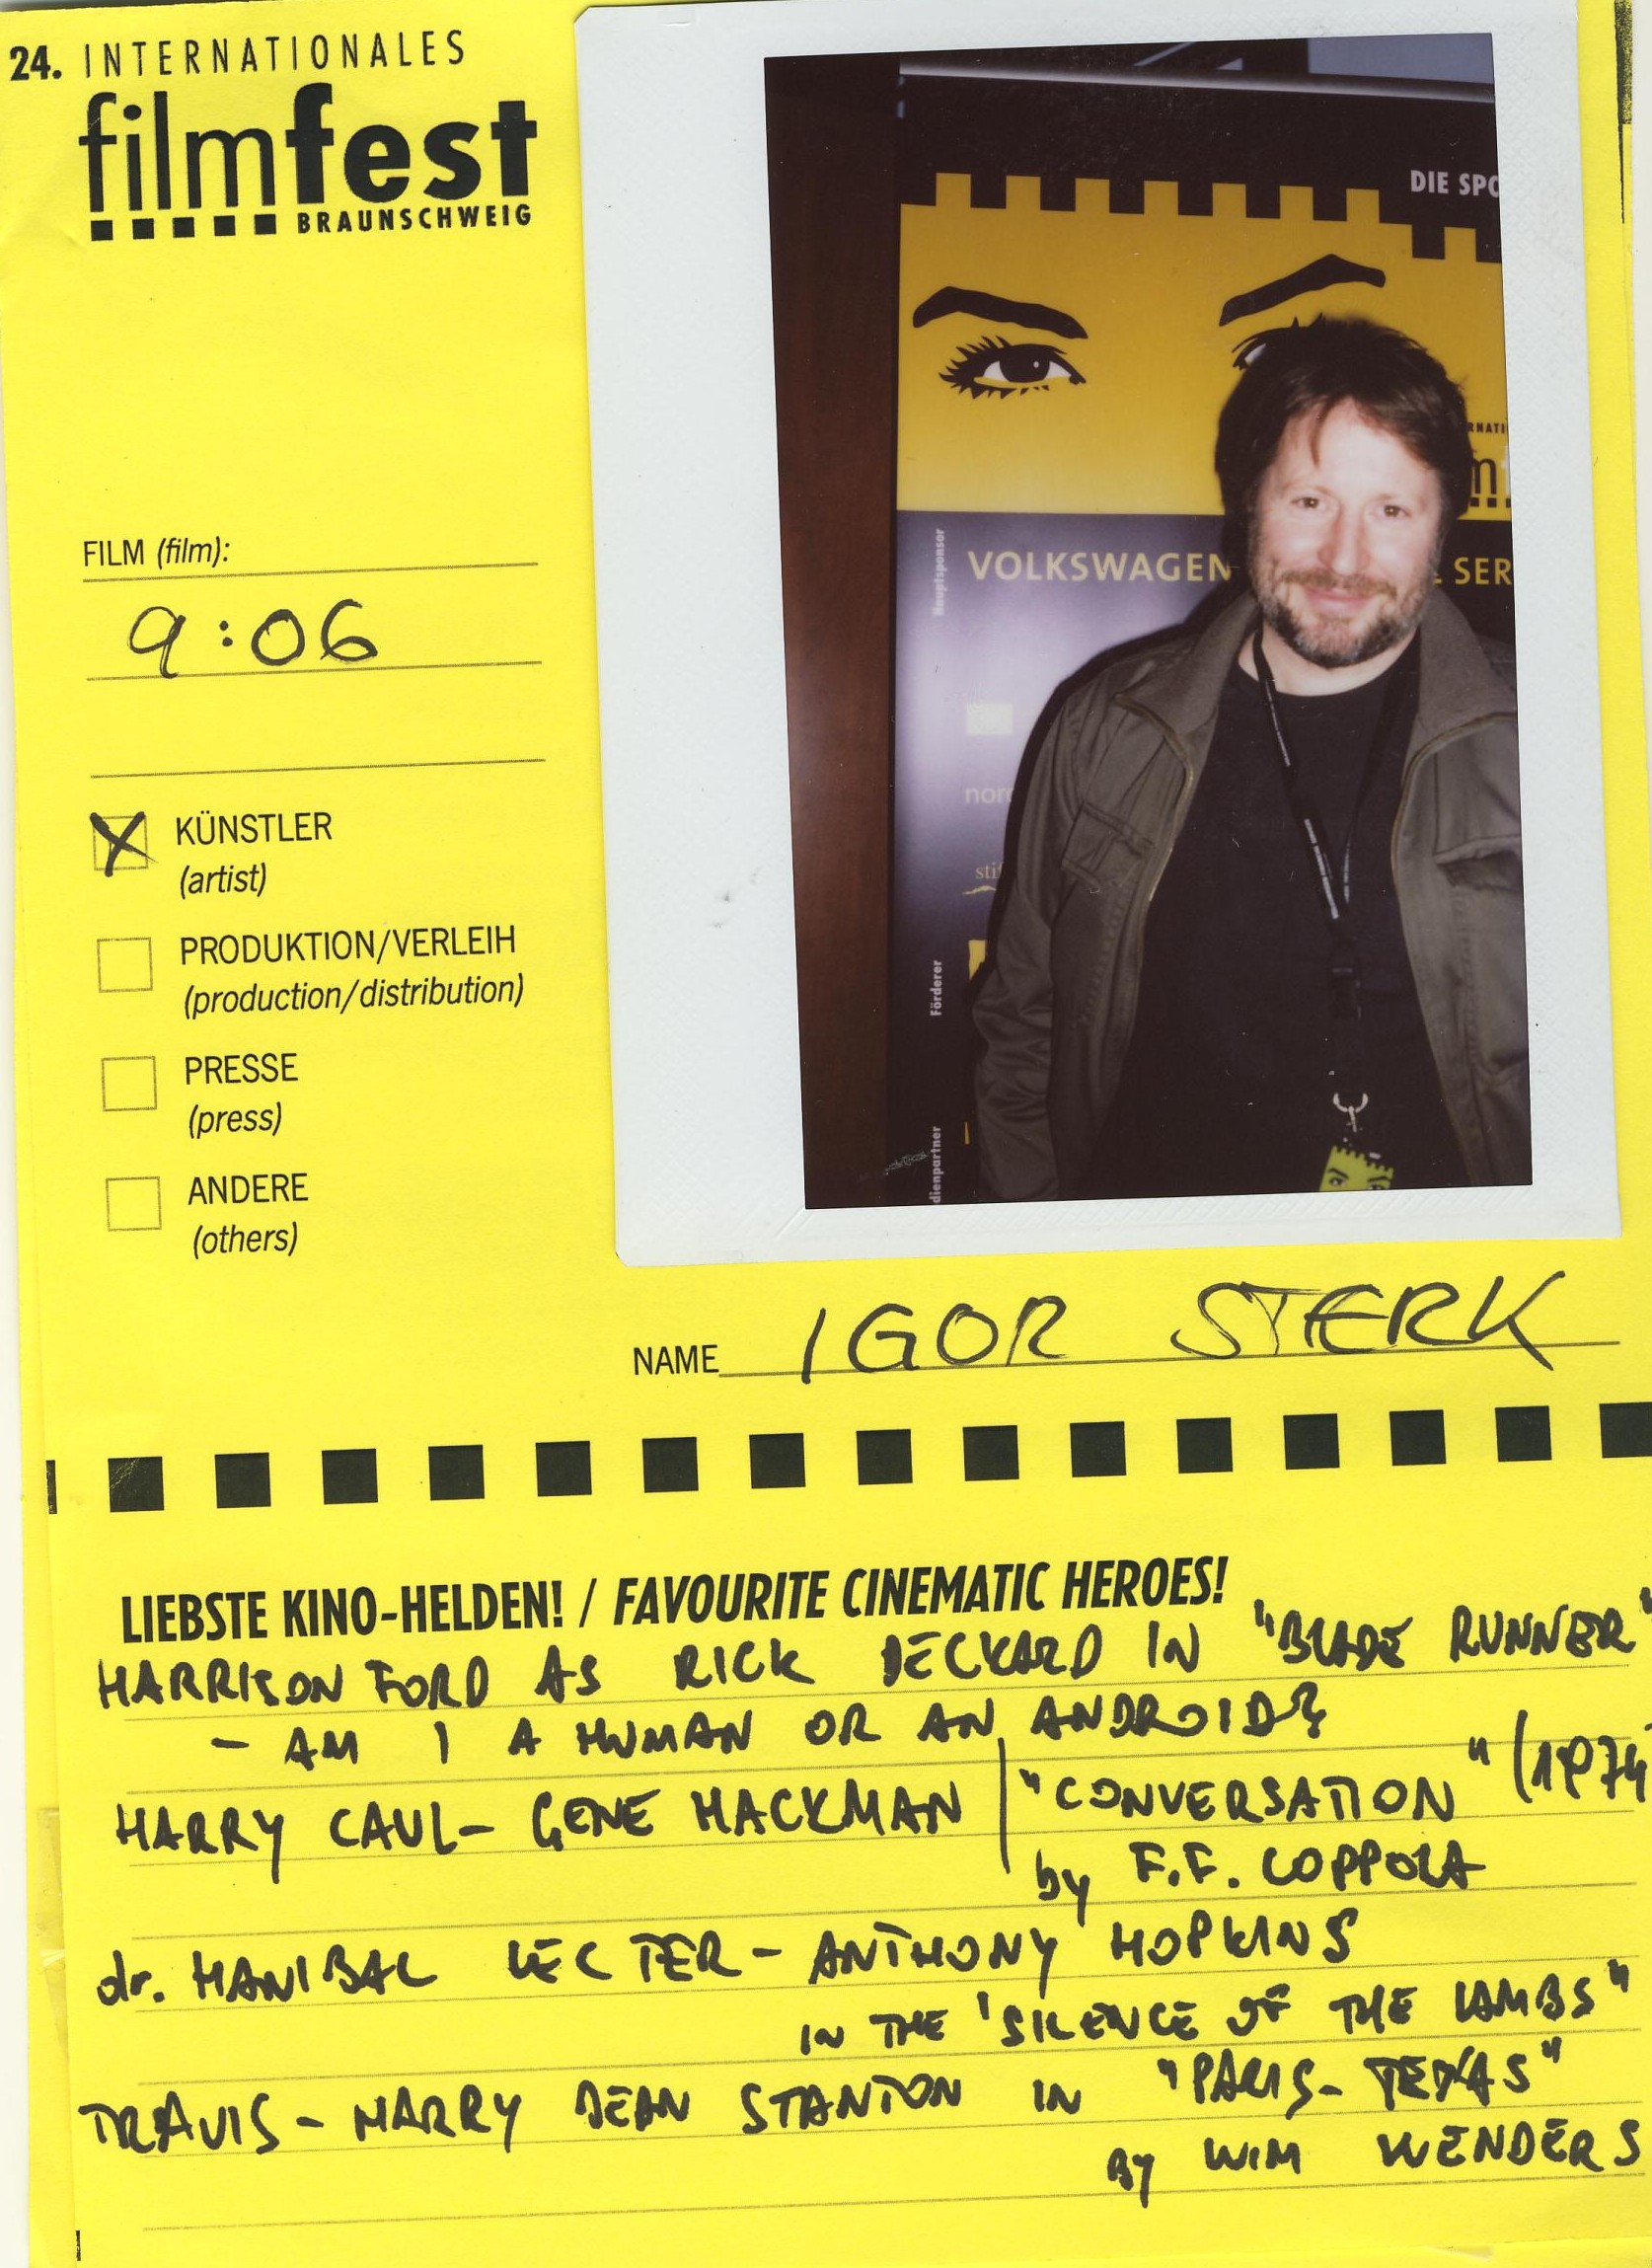 24. INTERNATIONALES
filmfest
BRAUNSCHWEIG
DIE SPO
RNATI
m
Hauptsponsor
VOLKSWAGEN
L SER
nord
stif
Förderer
dienpartner
FILM (film):
9:06
KÜNSTLER
(artist)
PRODUKTION/VERLEIH
(production/distribution)
PRESSE
(press)
ANDERE
(others)
NAME IGOR STERK
LIEBSTE KINO-HELDEN! / FAVOURITE CINEMATIC HEROES!
HARRISON FORD AS RICK DECKARD IN "BLADE RUNNER"
- AM I A HUMAN OR AN ANDROID?
HARRY CAUL- GENE HACKMAN | "CONVERSATION" (1974
by F.F. COPPOLA
dr. HANIBAL LECTER - ANTHONY HOPKINS
IN THE 'SILENCE OF THE LAMBS"
TRAVIS - HARRY DEAN STANTON IN "PARIS- TEXAS"
BY WIM WENDERS